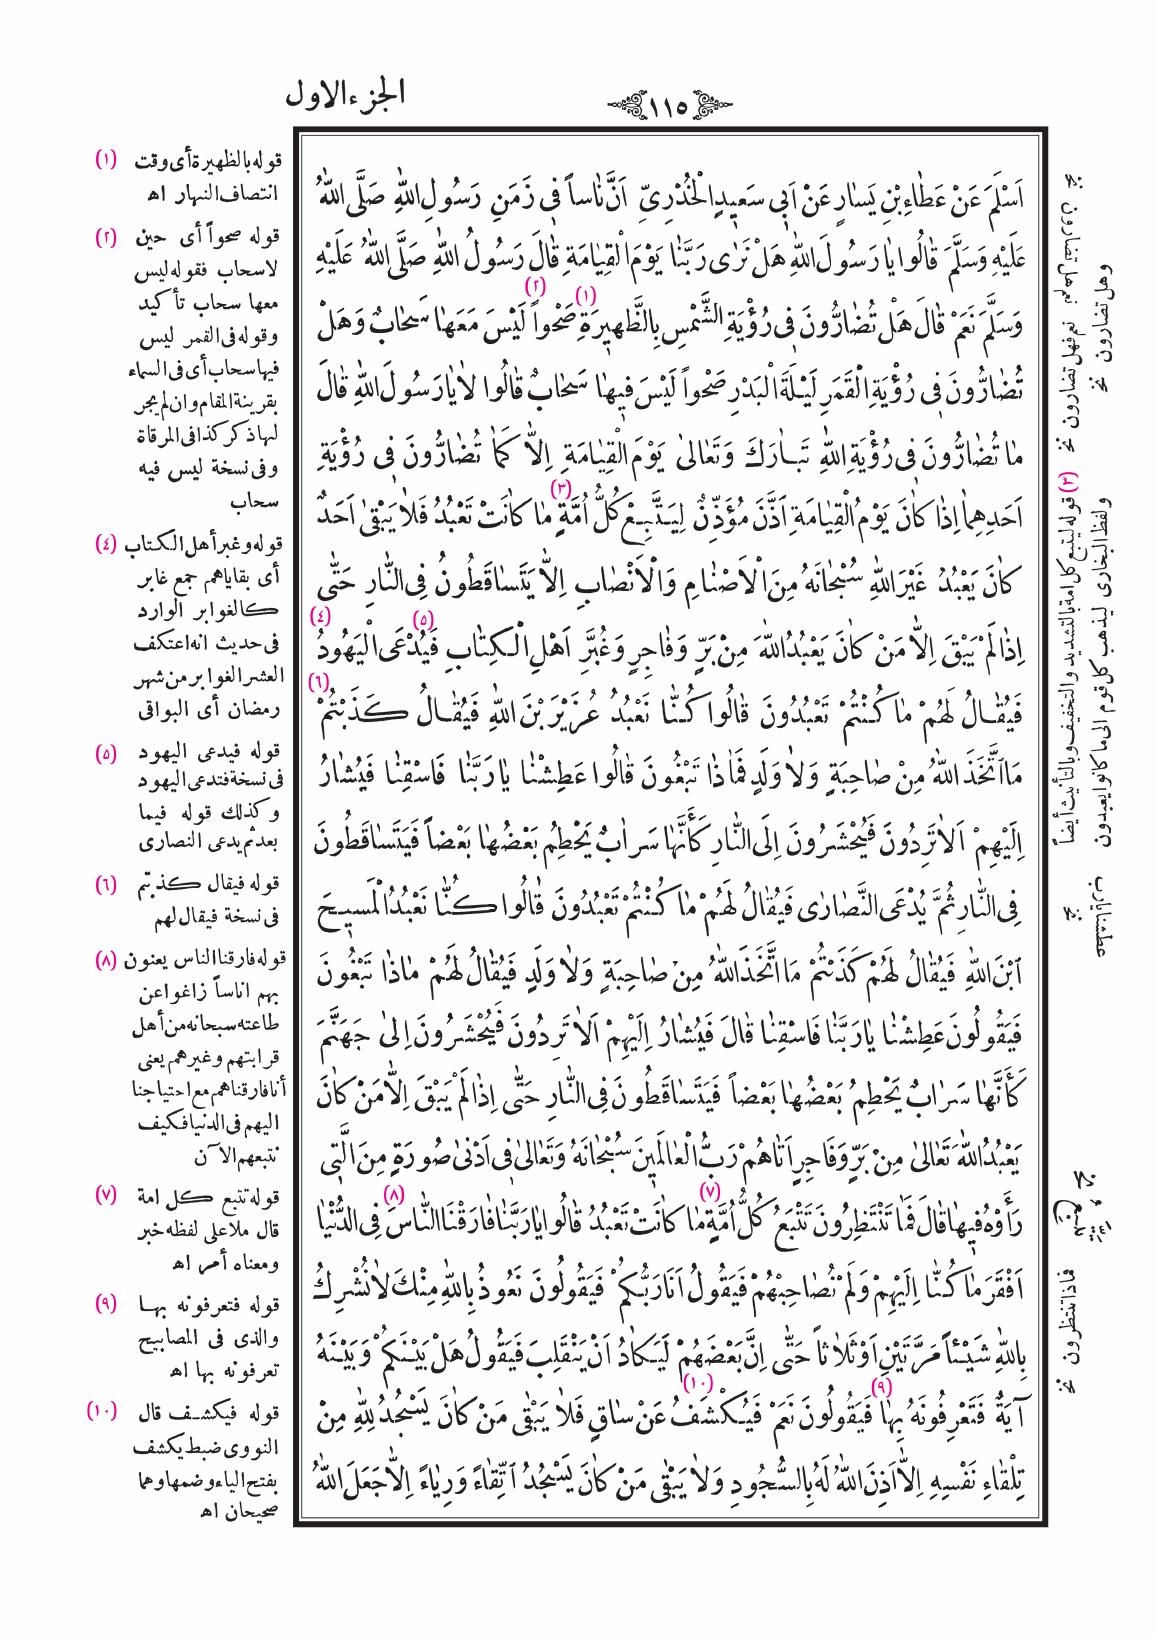 الجزء الاول
١١٥
اَسْلَمَ عَنْ عَطَاءِ بْنِ يَسَارٍ عَنْ اَبِى سَعِيدٍ الْخُدْرِىِّ اَنَّ نَاساً فِى زَمَنِ رَسُولِ اللّٰهِ صَلَّى اللّٰهُ
عَلَيْهِ وَسَلَّمَ قَالُوا يَا رَسُولَ اللّٰهِ هَلْ نَرٰى رَبَّنَا يَوْمَ الْقِيَامَةِ قَالَ رَسُولُ اللّٰهِ صَلَّى اللّٰهُ عَلَيْهِ
وَسَلَّمَ نَعَمْ قَالَ هَلْ تُضَارُّونَ فِى رُؤْيَةِ الشَّمْسِ بِالظَّهِيرَةِ (١) صَحْواً (٢) لَيْسَ مَعَهَا سَحَابٌ وَهَلْ
تُضَارُّونَ فِى رُؤْيَةِ الْقَمَرِ لَيْلَةَ الْبَدْرِ صَحْواً لَيْسَ فِيهَا سَحَابٌ قَالُوا لَا يَا رَسُولَ اللّٰهِ قَالَ
مَا تُضَارُّونَ فِى رُؤْيَةِ اللّٰهِ تَبَارَكَ وَتَعَالىٰ يَوْمَ الْقِيَامَةِ اِلَّا كَمَا تُضَارُّونَ فِى رُؤْيَةِ
اَحَدِهِمَا اِذَا كَانَ يَوْمُ الْقِيَامَةِ اَذَّنَ مُؤَذِّنٌ لِيَتَّبِعْ كُلُّ اُمَّةٍ (٣) مَا كَانَتْ تَعْبُدُ فَلَا يَبْقىٰ اَحَدٌ
كَانَ يَعْبُدُ غَيْرَ اللّٰهِ سُبْحَانَهُ مِنَ الْاَصْنَامِ وَالْاَنْصَابِ اِلَّا يَتَسَاقَطُونَ فِى النَّارِ حَتّٰى
اِذَا لَمْ يَبْقَ اِلَّا مَنْ كَانَ يَعْبُدُ اللّٰهَ مِنْ بَرٍّ وَفَاجِرٍ وَغُبَّرِ اَهْلِ الْكِتَابِ (٤) فَيُدْعَى (٥) الْيَهُودُ
فَيُقَالُ لَهُمْ مَا كُنْتُمْ تَعْبُدُونَ قَالُوا كُنَّا نَعْبُدُ عُزَيْرَ بْنَ اللّٰهِ فَيُقَالُ كَذَبْتُمْ (٦)
مَا اتَّخَذَ اللّٰهُ مِنْ صَاحِبَةٍ وَلَا وَلَدٍ فَمَاذَا تَبْغُونَ قَالُوا عَطِشْنَا يَا رَبَّنَا فَاسْقِنَا فَيُشَارُ
اِلَيْهِمْ اَلَا تَرِدُونَ فَيُحْشَرُونَ اِلَى النَّارِ كَأَنَّهَا سَرَابٌ يَحْطِمُ بَعْضُهَا بَعْضاً فَيَتَسَاقَطُونَ
فِى النَّارِ ثُمَّ يُدْعَى النَّصَارٰى فَيُقَالُ لَهُمْ مَا كُنْتُمْ تَعْبُدُونَ قَالُوا كُنَّا نَعْبُدُ الْمَسِيحَ
ابْنَ اللّٰهِ فَيُقَالُ لَهُمْ كَذَبْتُمْ مَا اتَّخَذَ اللّٰهُ مِنْ صَاحِبَةٍ وَلَا وَلَدٍ فَيُقَالُ لَهُمْ مَاذَا تَبْغُونَ
فَيَقُولُونَ عَطِشْنَا يَا رَبَّنَا فَاسْقِنَا قَالَ فَيُشَارُ اِلَيْهِمْ اَلَا تَرِدُونَ فَيُحْشَرُونَ اِلىٰ جَهَنَّمَ
كَأَنَّهَا سَرَابٌ يَحْطِمُ بَعْضُهَا بَعْضاً فَيَتَسَاقَطُونَ فِى النَّارِ حَتّٰى اِذَا لَمْ يَبْقَ اِلَّا مَنْ كَانَ
يَعْبُدُ اللّٰهَ تَعَالىٰ مِنْ بَرٍّ وَفَاجِرٍ اَتَاهُمْ رَبُّ الْعَالَمِينَ سُبْحَانَهُ وَتَعَالىٰ فِى اَدْنىٰ صُورَةٍ مِنَ الَّتِى
رَأَوْهُ فِيهَا قَالَ فَمَا تَنْتَظِرُونَ تَتْبَعُ كُلُّ اُمَّةٍ (٧) مَا كَانَتْ تَعْبُدُ قَالُوا يَا رَبَّنَا فَارَقْنَا النَّاسَ (٨) فِى الدُّنْيَا
اَفْقَرَ مَا كُنَّا اِلَيْهِمْ وَلَمْ نُصَاحِبْهُمْ فَيَقُولُ اَنَا رَبُّكُمْ فَيَقُولُونَ نَعُوذُ بِاللّٰهِ مِنْكَ لَا نُشْرِكُ
بِاللّٰهِ شَيْئاً مَرَّتَيْنِ اَوْ ثَلَاثاً حَتّٰى اِنَّ بَعْضَهُمْ لَيَكَادُ اَنْ يَنْقَلِبَ فَيَقُولُ هَلْ بَيْنَكُمْ وَبَيْنَهُ
آيَةٌ فَتَعْرِفُونَهُ بِهَا (٩) فَيَقُولُونَ نَعَمْ فَيُكْشَفُ (١٠) عَنْ سَاقٍ فَلَا يَبْقٰى مَنْ كَانَ يَسْجُدُ لِلّٰهِ مِنْ
تِلْقَاءِ نَفْسِهِ اِلَّا اَذِنَ اللّٰهُ لَهُ بِالسُّجُودِ وَلَا يَبْقٰى مَنْ كَانَ يَسْجُدُ اتِّقَاءً وَرِيَاءً اِلَّا جَعَلَ اللّٰهُ
(١) قوله بالظهيرة أى وقت
انتصاف النهار اه
(٢) قوله صحواً أى حين
لاسحاب فقوله ليس
معها سحاب تأكيد
وقوله فى القمر ليس
فيها سحاب أى فى السماء
بقرينة المقام وان لم يجر
لها ذكر كذا فى المرقاة
وفى نسخة ليس فيه
سحاب
(٤) قوله وغبر أهل الكتاب
أى بقاياهم جمع غابر
كالغوابر الوارد
فى حديث انه اعتكف
العشر الغوابر من شهر
رمضان أى البواقى
(٥) قوله فيدعى اليهود
فى نسخة فتدعى اليهود
وكذلك قوله فيما
بعد ثم يدعى النصارى
(٦) قوله فيقال كذبتم
فى نسخة فيقال لهم
(٨) قوله فارقنا الناس يعنون
بهم اناساً زاغوا عن
طاعته سبحانه من أهل
قرابتهم وغيرهم يعنى
أنا فارقناهم مع احتياجنا
اليهم فى الدنيا فكيف
نتبعهم الآن
(٧) قوله تتبع كل امة
قال ملاعلى لفظه خبر
ومعناه أمر اه
(٩) قوله فتعرفونه بها
والذى فى المصابيح
تعرفونه بها اه
(١٠) قوله فيكشف قال
النووى ضبط يكشف
بفتح الياء وضمها وهما
صحيحان اه
نعم فهل تضارون نخ
وهل تضارون نخ
(٣) قوله ليتبع كل امة بالتشديد والتخفيف وبالتأنيث أيضاً
ولفظ البخارى ليذهب كل قوم الى ما كانوا يعبدون
عطشنا يارب نخ
فماذا تنتظرون نخ